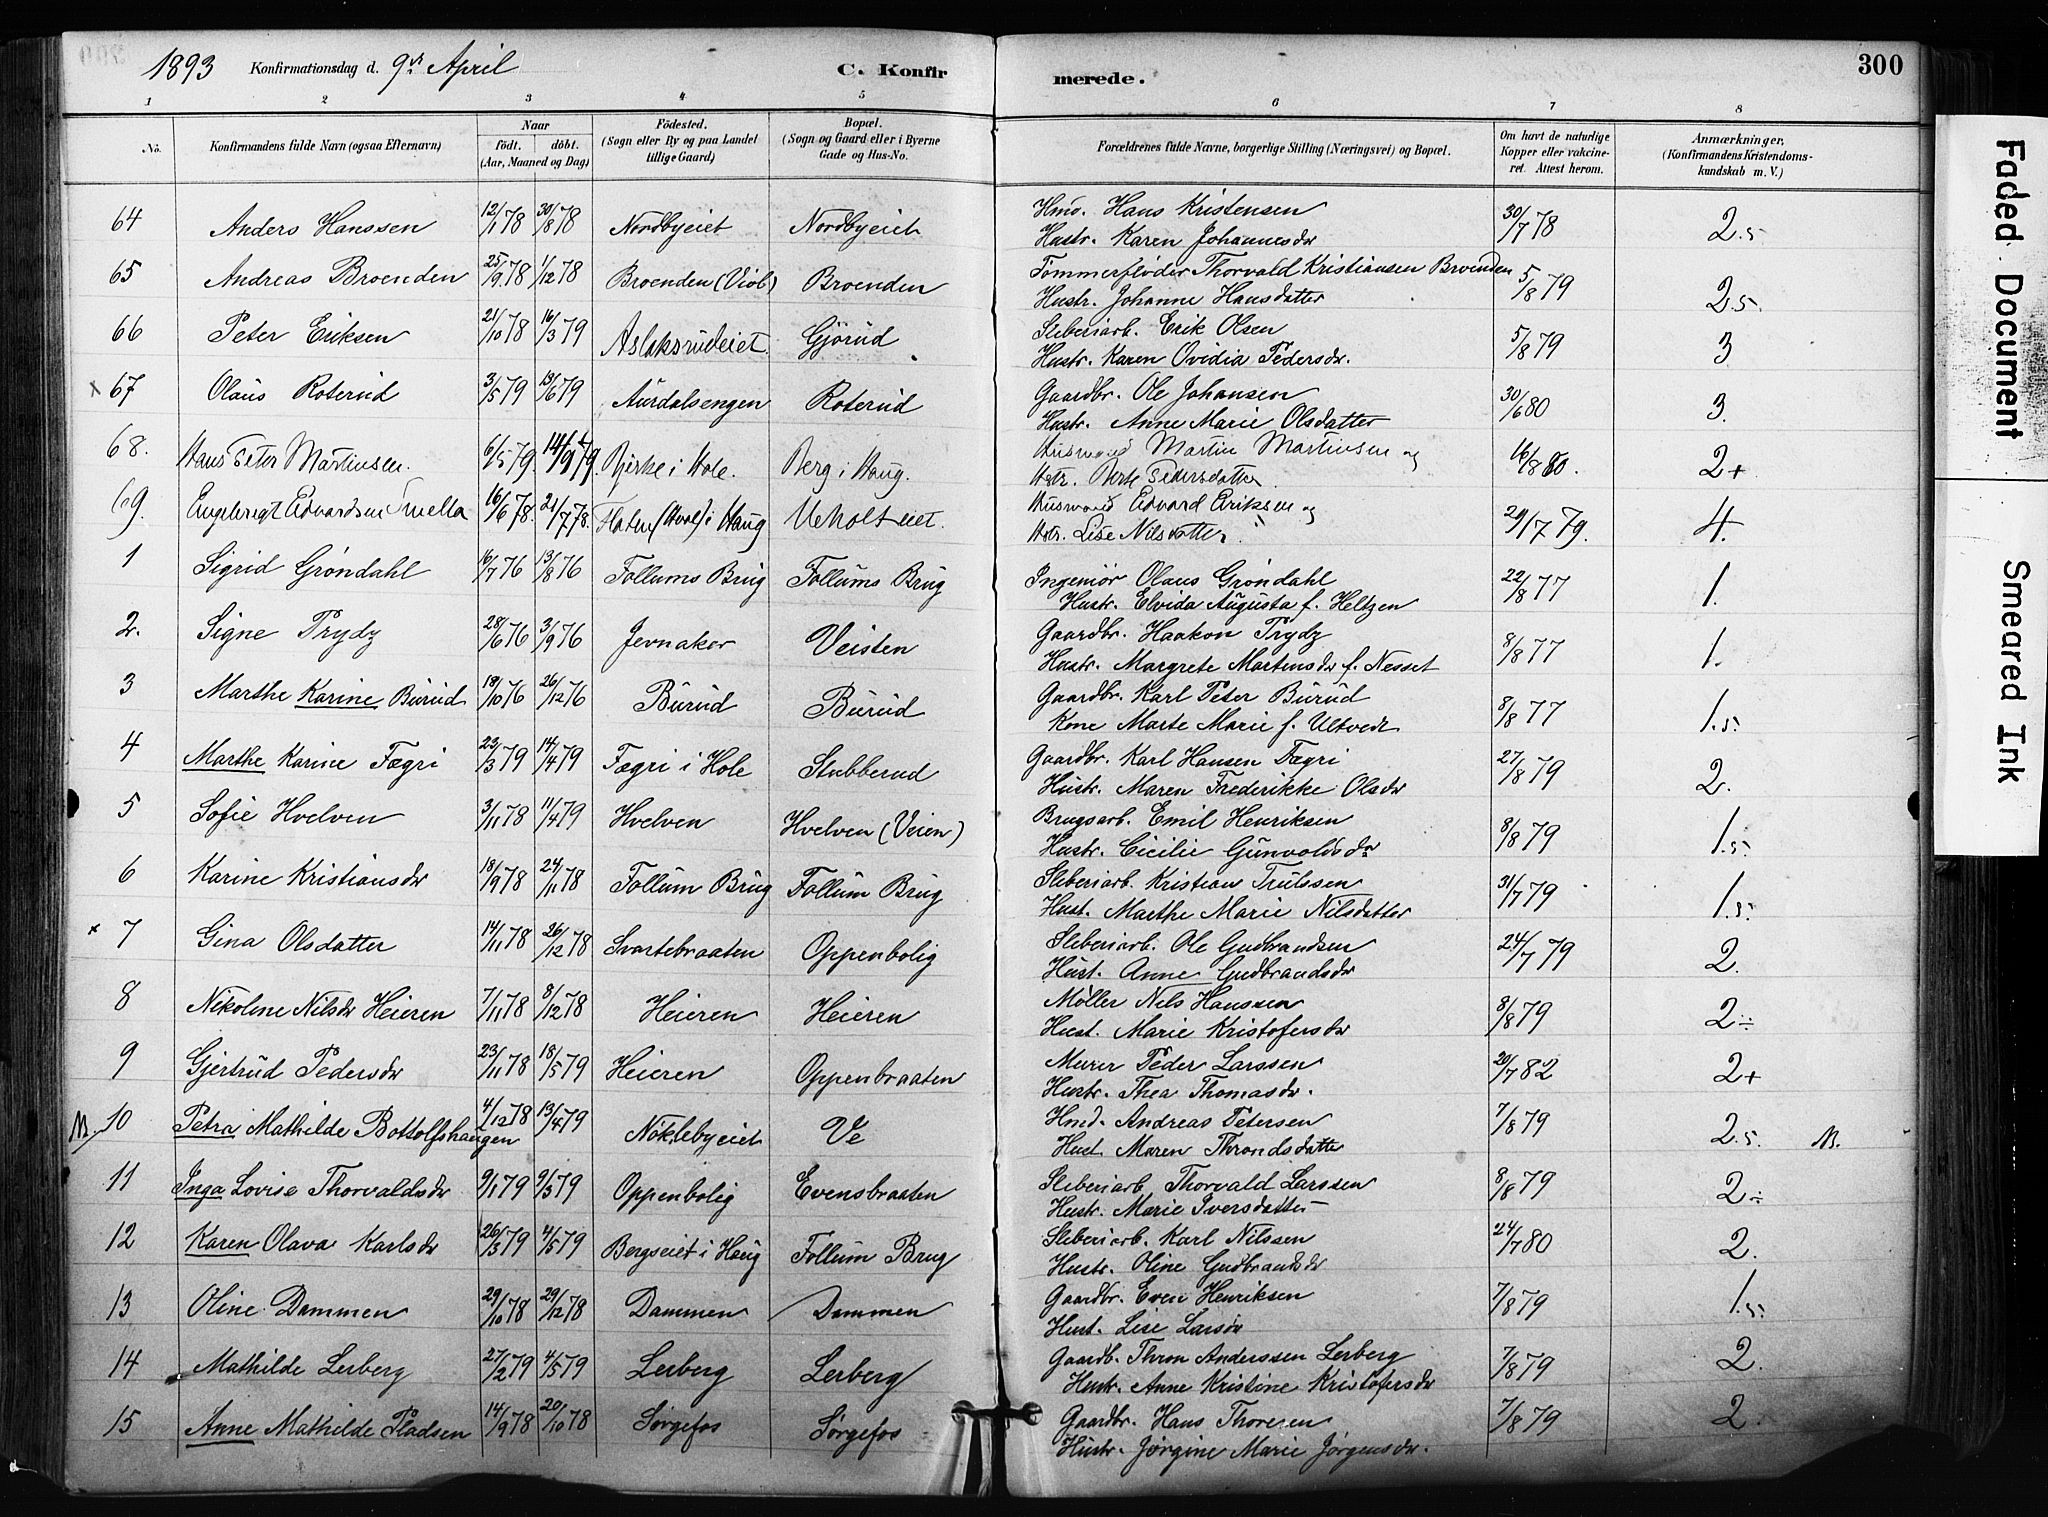 1893 Konfirmationsdag d. 9de April C. Konfirmerede. 300
1 2 3 4 5 6 7 8
No. Konfirmandens fulde Navn (ogsaa Efternavn) Naar født. døbt. (Aar, Maaned og Dag) Födested. (Sogn eller By og paa Landet tillige Gaard) Bopæl. (Sogn og Gaard eller i Byerne Gade og Hus-No. Forældrenes fulde Navne, borgerlige Stilling (Næringsvei) og Bopæl. Om havt de naturlige Kopper eller vakcineret. Attest herom. Anmærkninger, (Konfirmandens Kristendomskundskab m. V.)
64 Anders Hanssen 12/1 78 30/8 78 Nordbyeiet Nordbyeiet Hmd. Hans Kristensen 30/7 78 2.5
Hustr. Karen Johannesdr
65 Andreas Broenden 25/9 78 1/12 78 Broenden (Viöl) Broenden Tømmerfløder Thorvald Kristiansen Broenden 5/8 79 2.5.
Hustr. Johanne Hansdatter
66 Peter Eriksen 21/10 78 16/3 79 Aslaksrudeiet Gjörud Sliberiarb. Erik Olsen 5/8 79 3
Hustr. Karen Ovidia Pedersdr.
x 67 Olaus Roterud 3/5 79 13/6 79 Aurdalsengen Roterud Gaardbr. Ole Johansen 30/6 80 3.
Hustr. Anne Marie Olsdatter
68. Hans Peter Martinsen. 6/5 79. 14/9 79. Bjerke i Hole. Berg i Haug. Husmand Martin Martinsen og 16/8 80. 2+
Hstr. Berte Pedersdatter
69. Engebregt Edvardsen Smella 16/6 78. 21/7 78. Flaten (Hval) i Haug Veholteiet. Husmand Edvard Eriksen og 29/7 79. 4.
Hstr. Lise Nilsdatter
1 Sigrid Grøndahl 16/7 76 13/8 76 Follums Brug Follums Brug Ingeniör Olaus Grøndahl 22/8 77 1.
Hustr. Elvida Augusta f. Heltzen
2. Signe Trydz 28/6 76 3/9 76 Jevnaker Veisten Gaardbr. Haakon Trydz 8/8 77 1.
Hustr. Margrete Martinsdr f. Nesset
3 Marthe Karine Burud 18/10 76 26/12 76 Burud Burud Gaardbr. Karl Peter Burud 8/8 77 1.5.
Kone Marte Marie f. Ultvedt
4 Marthe Karine Fægri 23/3 79 14/4 79 Fægri i Hole Stubberud Gaardbr. Karl Hansen Fægri 27/8 79 2.
Hustr. Maren Frederikke Olsdr
5 Sofie Hvelven 3/11 78 11/4 79 Hvelven Hvelven (Veien) Brugsarb. Emil Henriksen 8/8 79 1.5.
Hustr. Cicilie Gunvoldsdr
6 Karine Kristiansdr 18/9 78 24/11 78 Follum Brug Follum Brug Sliberiarb. Kristian Trulssen 31/7 79 1.5.
Hust. Marthe Marie Nilsdatter
x 7 Gina Olsdatter 14/11 78 26/12 78 Svartebraaten Oppenbolig Sliberiarb. Ole Gudbrandsen 24/7 79 2.
Hust. Anne Gudbrandsdr
8 Nikoline Nilsdr Heieren 7/11 78 8/12 78 Heieren Heieren Møller Nils Hanssen 8/8 79 2÷
Hust. Marie Kristofersdr
9 Gjertrud Pedersdr 23/11 78 18/5 79 Heieren Oppenbraaten Murer Peder Larssen 20/7 82 2+
Hustr. Thea Thomasdr.
N. 10 Petra Mathilde Bottolfshaugen 4/12 78 13/4 79 Nøklebyeiet Ve Hmd. Andreas Petersen 7/8 79 2.5. N.
Hust. Maren Throndsdatter
11 Inga Lovise Thorvaldsdr 9/1 79 9/3 79 Oppenbolig Evensbraaten Sliberiarb Thorvald Larssen 8/8 79 2÷
Hustr. Marie Iversdatter
12 Karen Olava Karlsdr 26/3 79 4/5 79 Bergseiet i Haug Follum Brug Sliberiarb. Karl Nilssen 24/7 80 2.
Hustr. Oline Gudbrandsdr
13 Oline Dammen 29/10 78 29/12 78 Dammen Dammen Gaardbr. Even Henriksen 7/8 79 1.5.
Hust. Lise Larsdr
14 Mathilde Lerberg 27/2 79 4/5 79 Lerberg Lerberg Gaardb. Thron Anderssen Lerberg 7/8 79 2.
Hustr. Anne Kristine Kristofersdr
15 Anne Mathilde Pladsen 14/9 78 20/10 78 Sørgefos Sørgefos Gaardbr. Hans Thoresen 7/8 79 2.
Hustr. Jørgine Marie Jørgensdr.
Faded Document
Smeared Ink